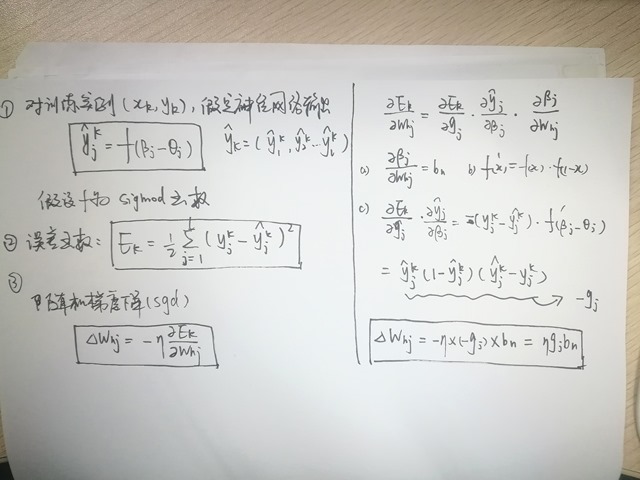 ① 对训练案例 (xk, yk), 假定神经网络输出
ŷⱼᵏ = f(βj - θj)    ŷk = (ŷ₁ᵏ, ŷ₂ᵏ ... ŷₗᵏ)
假设 f 为 sigmod 函数
② 误差函数: Ek = 1/2 Σⱼ₌₁ˡ (yⱼᵏ - ŷⱼᵏ)²
③
随机梯度下降(sgd)
△Whj = -η ∂Ek/∂Whj
∂Ek/∂Whj = ∂Ek/∂ŷj · ∂ŷj/∂βj · ∂βj/∂Whj
a) ∂βj/∂Whj = bn    b) f'(x) = f(x) · f(1-x)
c) ∂Ek/∂ŷj · ∂ŷj/∂βj = -(yⱼᵏ - ŷⱼᵏ) · f'(βj - θj)
= ŷⱼᵏ (1 - ŷⱼᵏ) (ŷⱼᵏ - yⱼᵏ)
→ -gj
△Whj = -η × (-gj) × bn = ηgjbn